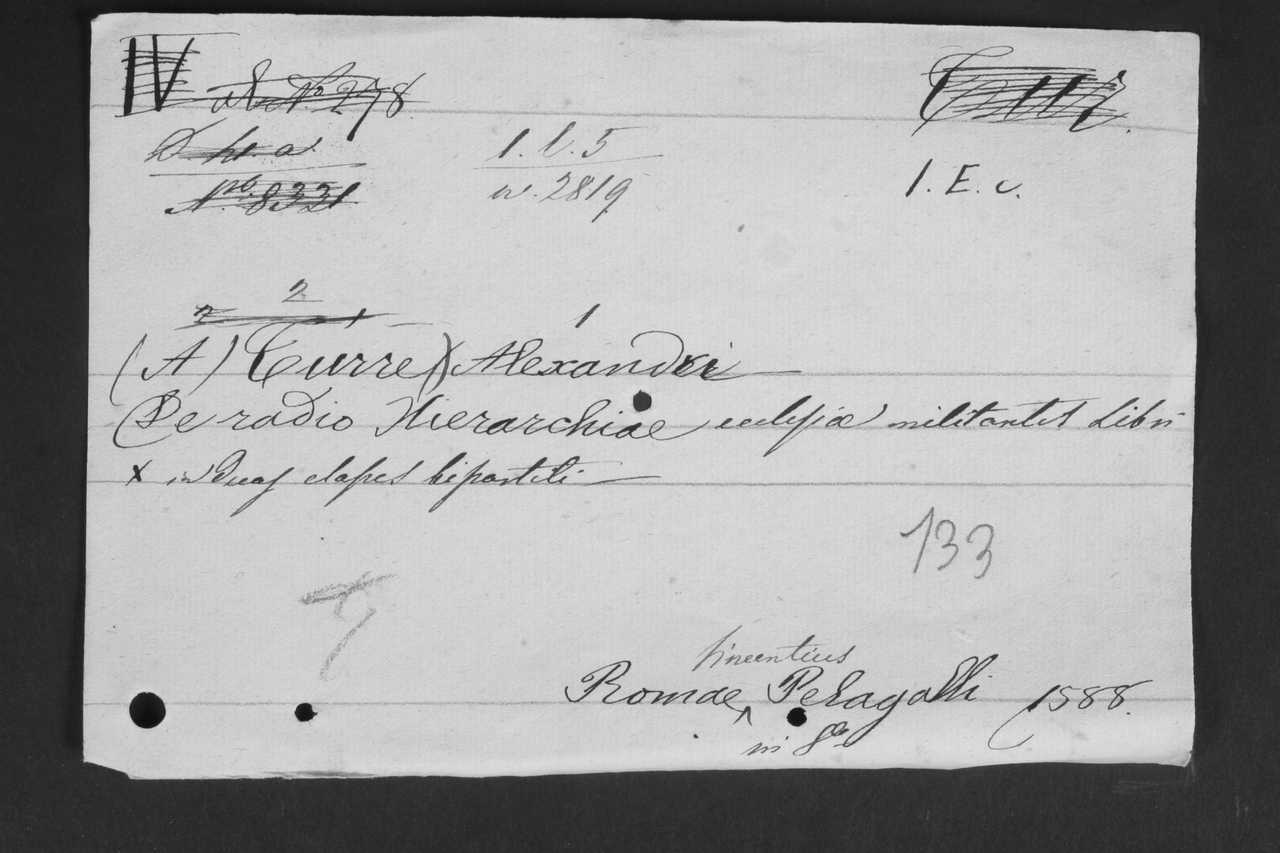 IV
N° 278
1. E. c.
1. l. 5
N° 8321
w. 2819
2
1
(A) Turre) Alexandri
De radio Hierarchiae eclesiae militantis Libri
X in duas classes bipartiti
133
Vincentius
Romae Pelagalli 1588.
in 8°